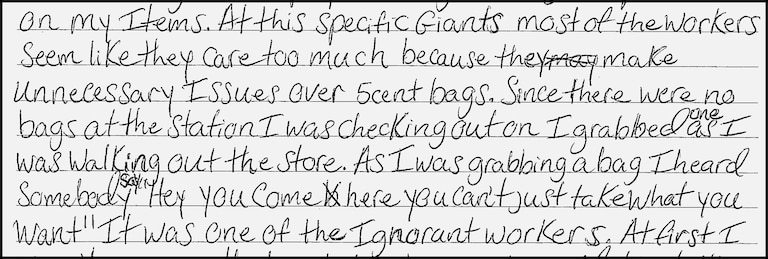 on my Items. At this specific Giants most of the workers
seem like they care too much because they make
unnecessary Issues over 5cent bags. Since there were no
bags at the station I was checking out on I grabbed one as I
was walking out the store. As I was grabbing a bag I heard
somebody say "Hey you come here you can't just take what you
want" It was one of the Ignorant workers. At first I